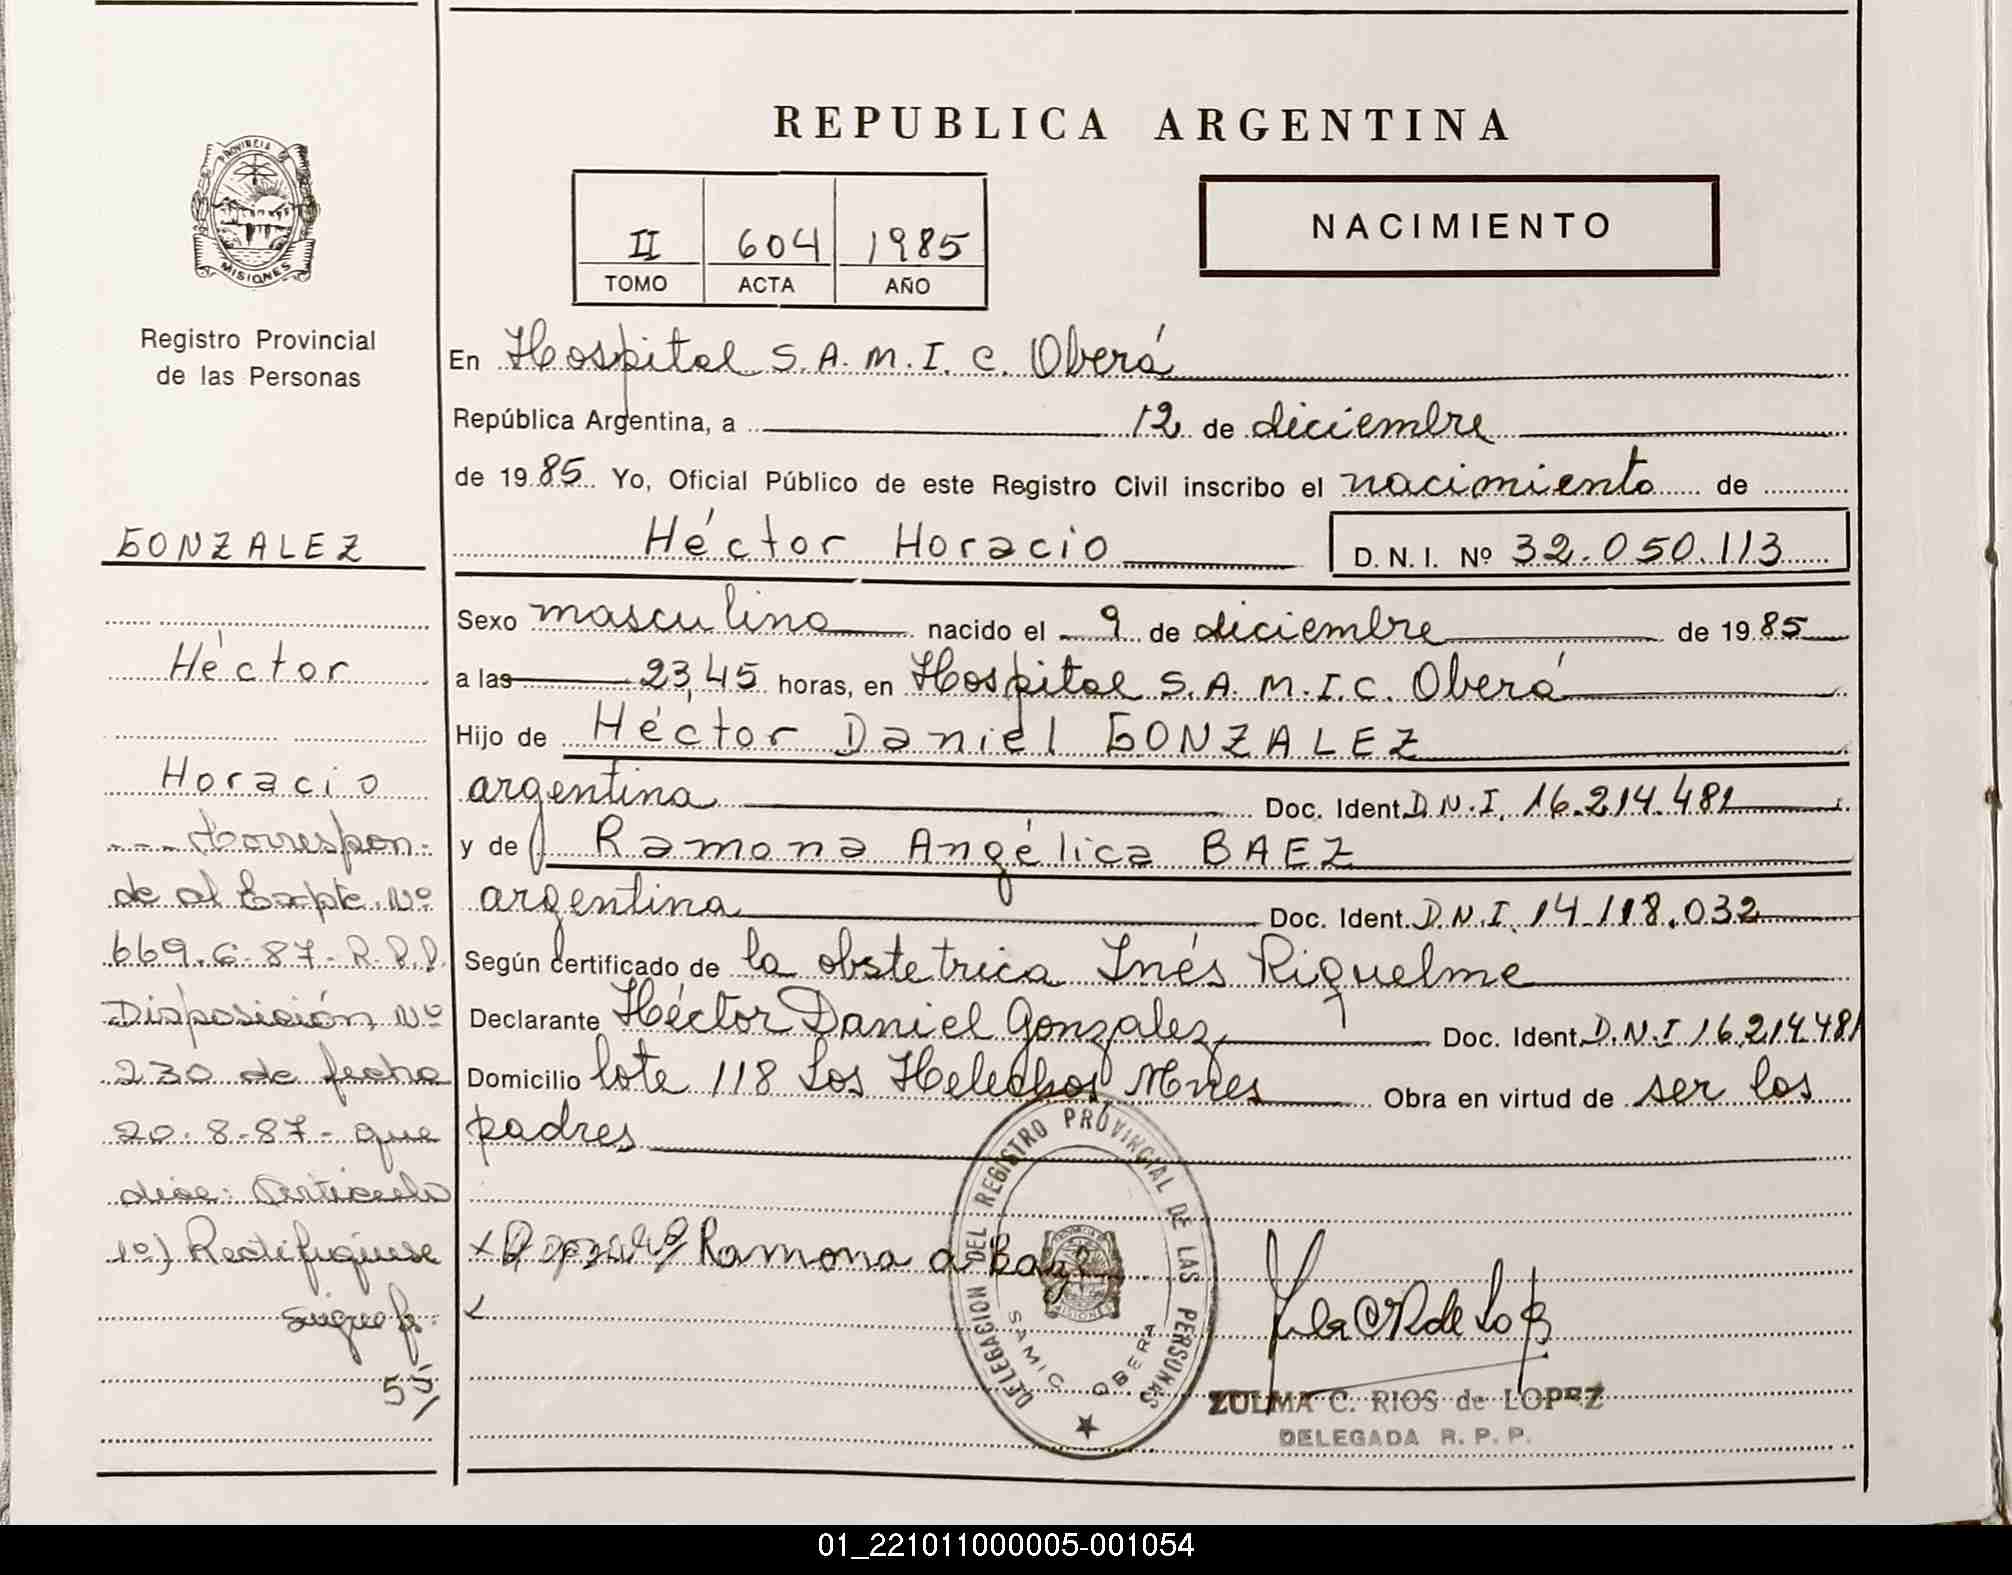 REPUBLICA ARGENTINA
PROVINCIA DE
MISIONES
Registro Provincial
de las Personas
II 604 1985
TOMO ACTA AÑO
NACIMIENTO
En Hospital S.A.M.I.C. Oberá
República Argentina, a 12 de diciembre
de 1985 Yo, Oficial Público de este Registro Civil inscribo el nacimiento de
Héctor Horacio D. N. I. Nº 32.050.113
Sexo masculino nacido el 9 de diciembre de 1985
a las 23,45 horas, en Hospital S.A.M.I.C. Oberá
Hijo de Héctor Daniel GONZALEZ
argentina Doc. Ident. D.N.I. 16.214.481
y de Ramona Angélica BAEZ
argentina Doc. Ident. D.N.I. 14.118.032
Según certificado de la obstetrica Inés Riquelme
Declarante Héctor Daniel Gonzalez Doc. Ident. D.N.I 16.214.481
Domicilio lote 118 Los Helechos Mnes Obra en virtud de ser los
padres
Ramona a Baez
GONZALEZ
Héctor
Horacio
--- Correspon-
de al Expte. Nº
669-G-87-R.P.P.
Disposición Nº
230 de fecha
20-8-87- que
dice: Articulo
1º) Rectifiquese
sigue
DELEGACION DEL REGISTRO PROVINCIAL DE LAS PERSONAS
SAMIC OBERA
ZULMA C. RIOS de LOPEZ
DELEGADA R. P. P.
01_221011000005-001054